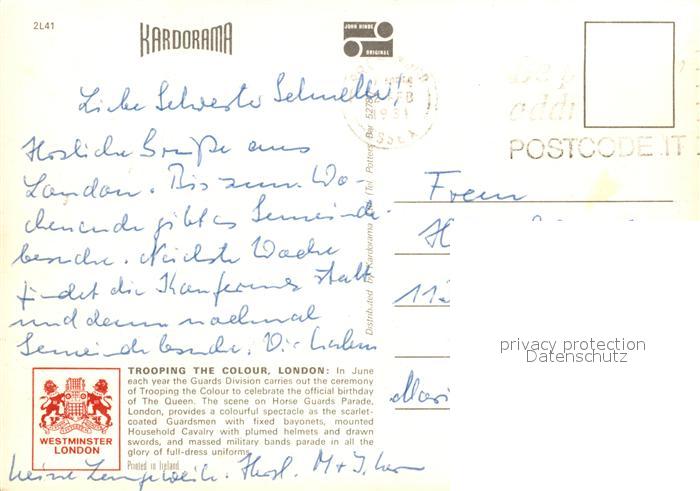 2L41
KARDORAMA
JOHN HINDE
ORIGINAL
1981
POSTCODE IT
Liebe Schwester Schneller!
Herzliche Grüße aus
London. Bis zum Wo-
chenende gibt es Gemeinde-
besuche. Nächste Woche
findet die Konferenz statt
und dann nochmal
Gemeindebesuche. Wir haben
keine Langweile. Herzl. M + J
Frau
H
11
Mari
Distributed by Kardorama (Tel. Potters Bar 5278
privacy protection
Datenschutz
WESTMINSTER
LONDON
TROOPING THE COLOUR, LONDON: In June
each year the Guards Division carries out the ceremony
of Trooping the Colour to celebrate the official birthday
of The Queen. The scene on Horse Guards Parade,
London, provides a colourful spectacle as the scarlet-
coated Guardsmen with fixed bayonets, mounted
Household Cavalry with plumed helmets and drawn
swords, and massed military bands parade in all the
glory of full-dress uniforms.
Printed in Ireland